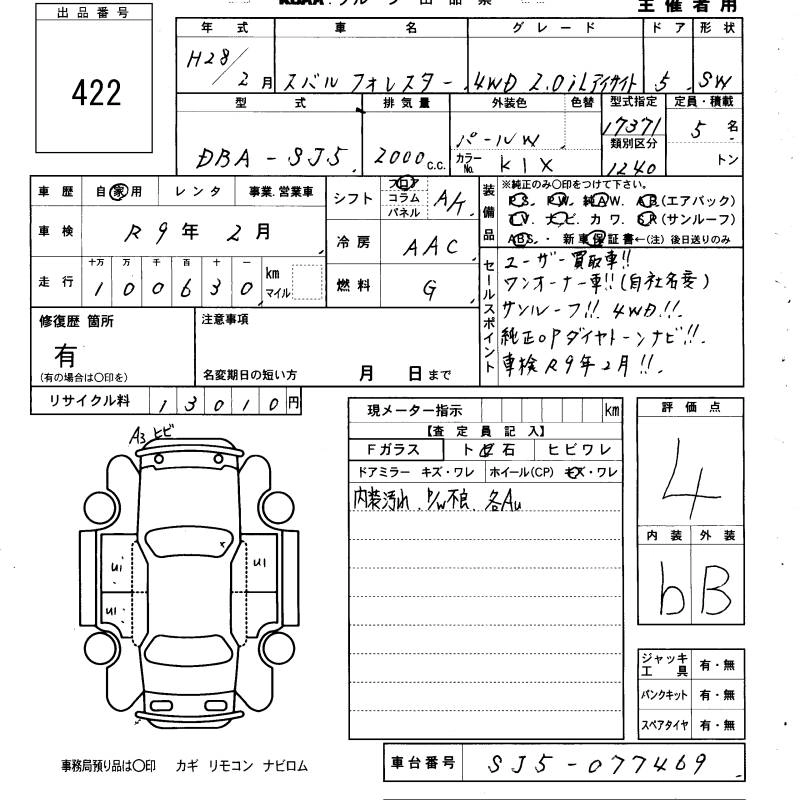 出品番号
422
主催者用
年 式 車 名 グレード ドア 形状
H28/2月 スバル フォレスター 4WD 2.0iLアイサイト 5 SW
型 式 排気量 外装色 色替 型式指定 定員・積載
DBA-SJ5 2000c.c. パールW 17371 5名
類別区分
カラーNo. K1X 1240 トン
車歴 自家用 レンタ 事業.営業車
シフト フロア コラム パネル A/K
装備品 ※純正のみ○印をつけて下さい。
P.S. P.W. 純A.W. A.B.(エアバック)
T.V. ナビ カワ. S.R(サンルーフ)
ABS. ・ 新車保証書←(注) 後日送りのみ
車検 R9年2月
冷房 AAC
走行 十万 万 千 百 十 一
100630 km マイル
燃料 G
セールスポイント
ユーザー買取車!!
ワンオーナー車!!(自社名変)
サンルーフ!! 4WD!!!
純正OPダイヤトーンナビ!!
車検R9年2月!!
修復歴 箇所
有
(有の場合は○印を)
注意事項
名変期日の短い方 月 日まで
リサイクル料 13010円
現メーター指示 km
【査定員記入】
Fガラス トビ石 ヒビワレ
ドアミラー キズ・ワレ ホイール(CP) キズ・ワレ
内装汚れ. P/W不良. 各AU
評価点
4
内装 外装
b B
A3 ヒビ
U1 U1
U1
ジャッキ工具 有・無
パンクキット 有・無
スペアタイヤ 有・無
事務局預り品は○印 カギ リモコン ナビロム
車台番号 SJ5-077469